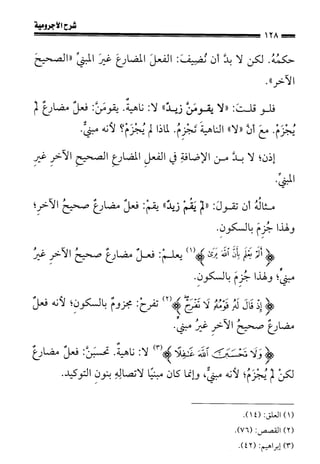 شرح الآجرومية
١٢٨
حكمُهُ. لكن لا بدَّ أن نُضيفَ: الفعلَ المضارعَ غيرَ المبنيِّ «الصحيحَ
الآخرِ».
فلو قلتَ: «لا يقومَنَّ زيدٌ» لا: ناهيةٌ. يقومَنَّ: فعلٌ مضارعٌ لم
يُجْزَمْ. مع أنَّ «لا» الناهيةَ تَجْزِمُ. لماذا لم يُجْزَمْ؟ لأنه مبنيٌّ.
إذن؛ لا بدَّ من الإضافةِ في الفعلِ المضارعِ الصحيحِ الآخرِ غيرِ
المبنيِّ.
مثالُهُ أن تقولَ: «لم يَقُمْ زيدٌ» يقمْ: فعلٌ مضارعٌ صحيحُ الآخرِ؛
ولهذا جُزِمَ بالسكونِ.
﴿ أَلَمْ يَعْلَم بِأَنَّ ٱللَّهَ يَرَىٰ ﴾(١) يعلمْ: فعلٌ مضارعٌ صحيحُ الآخرِ غيرُ
مبنيٍّ؛ ولهذا جُزِمَ بالسكونِ.
﴿ إِذْ قَالَ لَهُۥ قَوْمُهُۥ لَا تَفْرَحْ ﴾(٢) تفرحْ: مجزومٌ بالسكونِ؛ لأنه فعلٌ
مضارعٌ صحيحُ الآخرِ غيرُ مبنيٍّ.
﴿ وَلَا تَحْسَبَنَّ ٱللَّهَ غَٰفِلًا ﴾(٣) لا: ناهيةٌ. تحسبَنَّ: فعلٌ مضارعٌ
لكنْ لم يُجْزَمْ؛ لأنه مبنيٌّ، وإنما كان مبنيًا لاتصالِهِ بنونِ التوكيد.
(١) العلق: (١٤).
(٢) القصص: (٧٦).
(٣) إبراهيم: (٤٢).